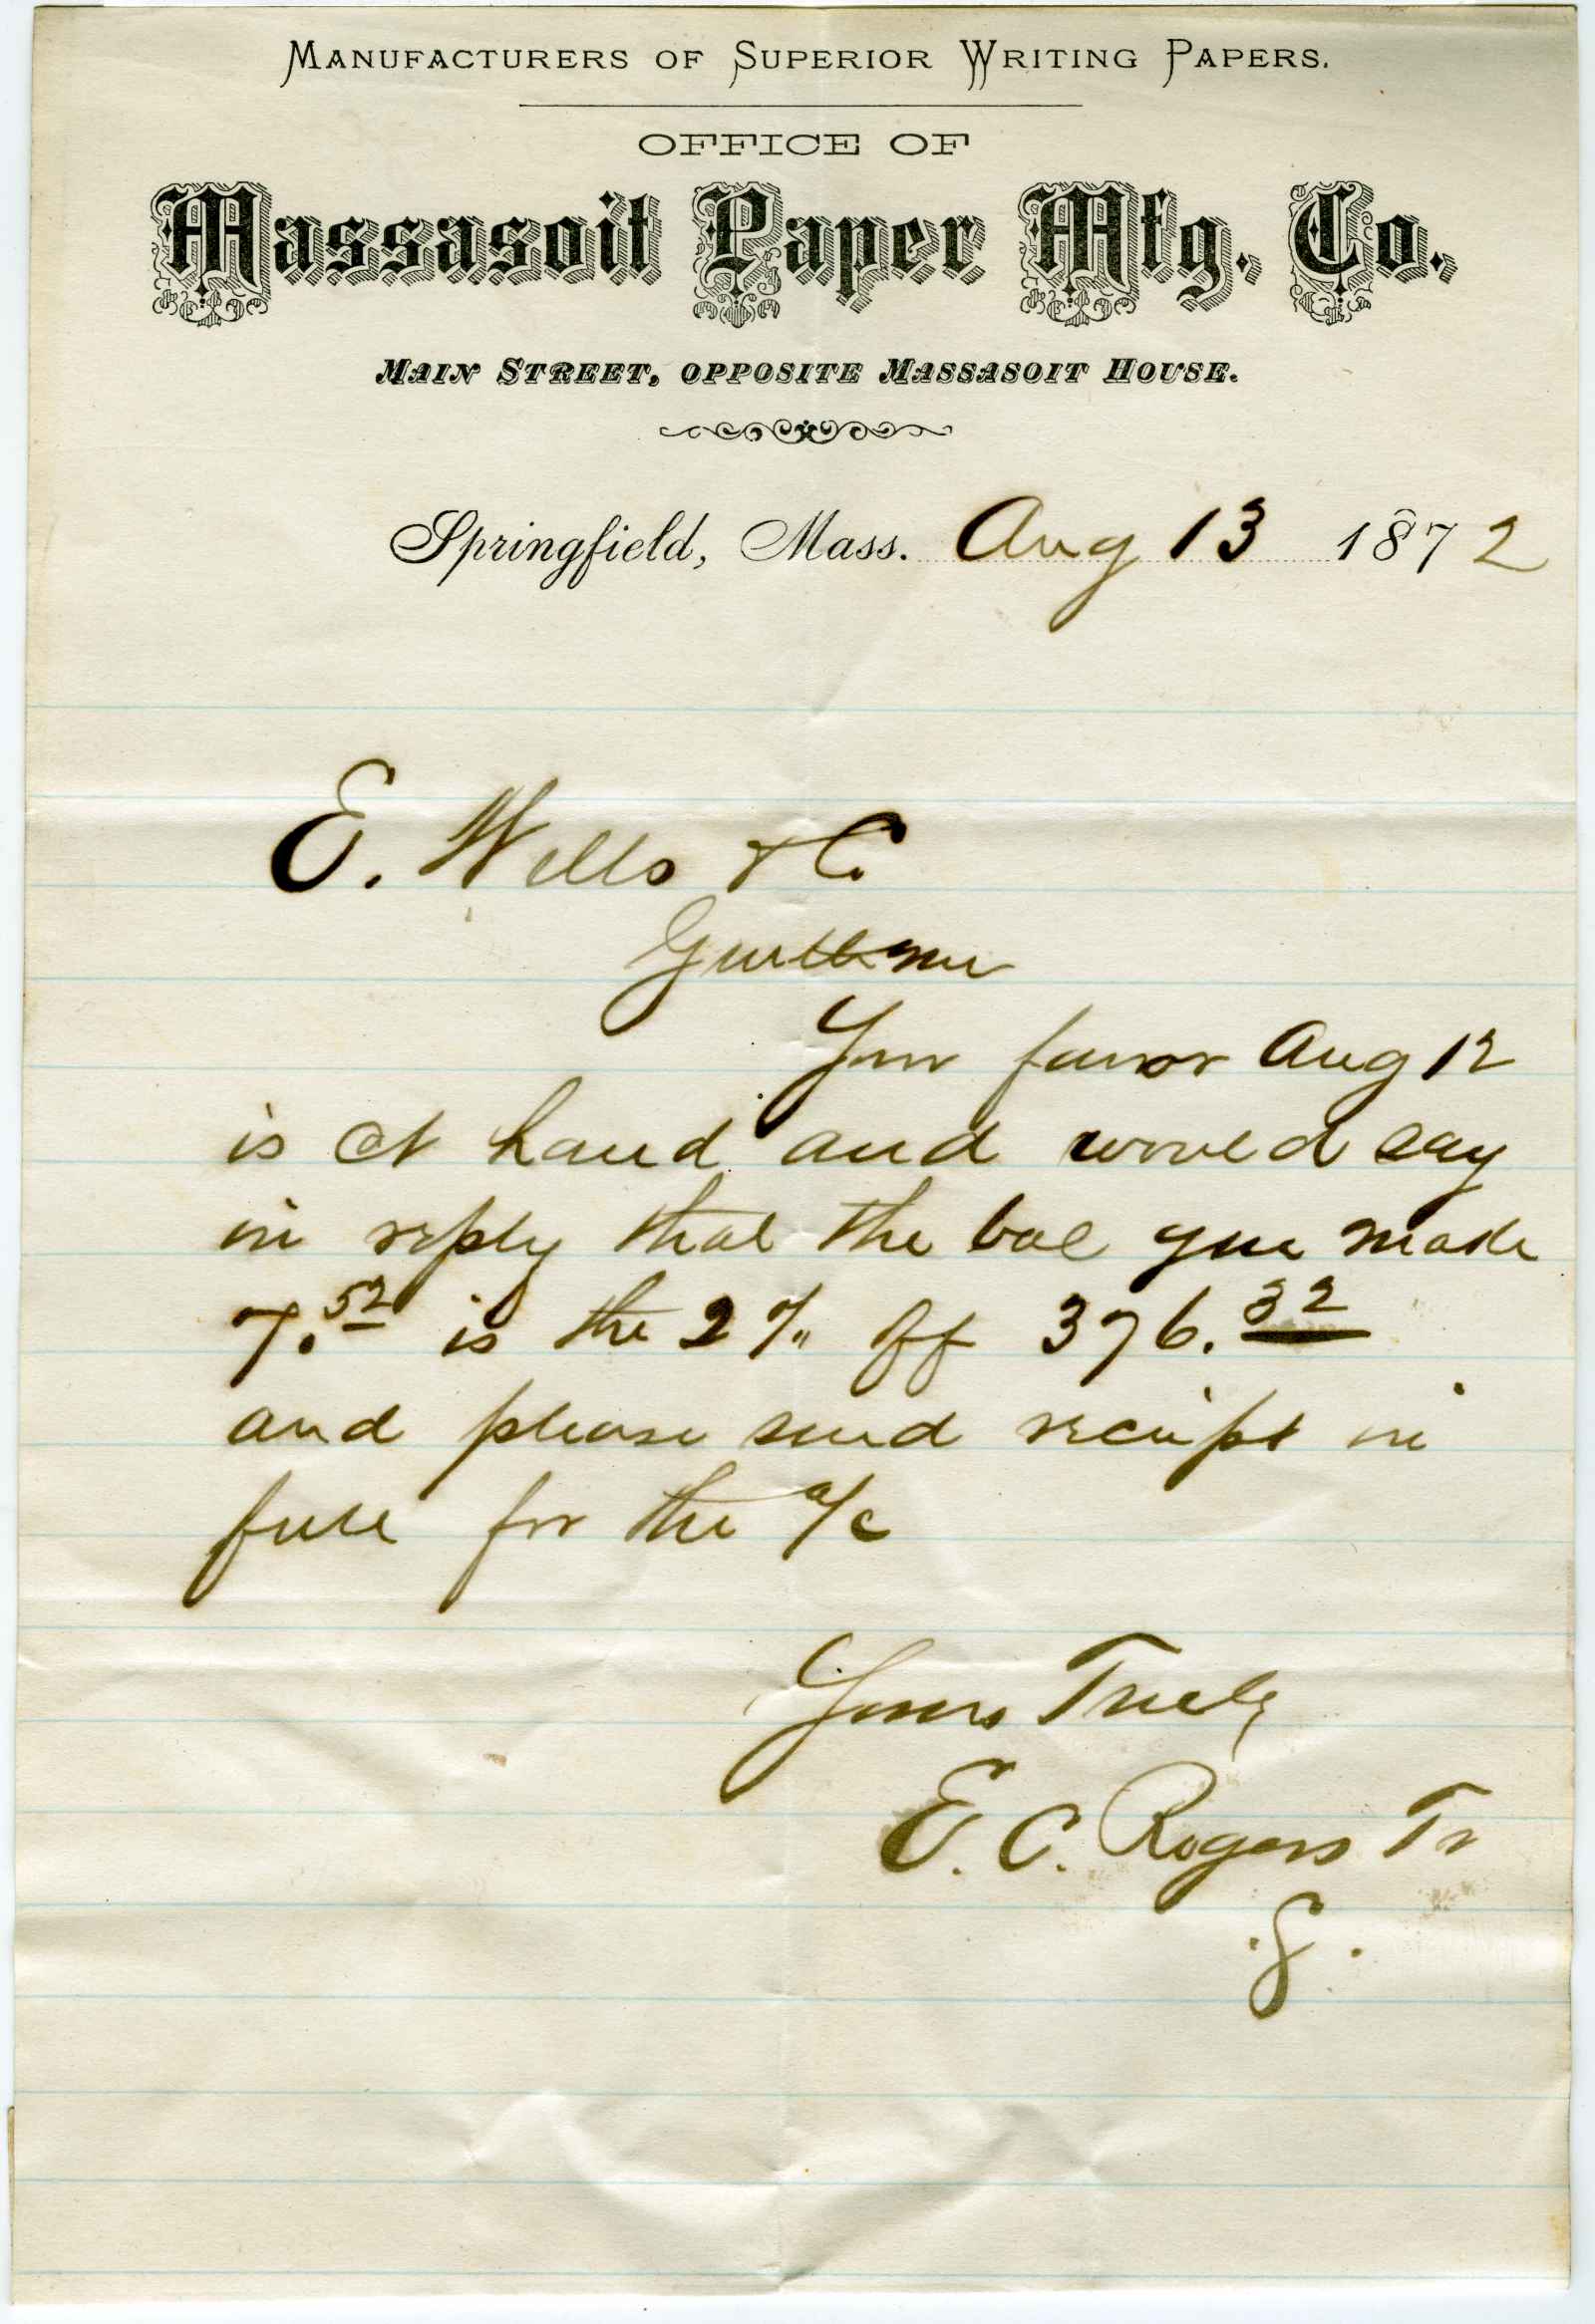 MANUFACTURERS OF SUPERIOR WRITING PAPERS.
OFFICE OF
Massasoit Paper Mfg. Co.
MAIN STREET, OPPOSITE MASSASOIT HOUSE.
Springfield, Mass. Aug 13 1872
E. Wells & C.
Gentlemen
Your favor Aug 12
is at hand and would say
in reply that the bal you made
7.52 is the 2% off 376.32
and please send receipt in
full for the a/c
Yours Truly
E. C. Rogers Tr